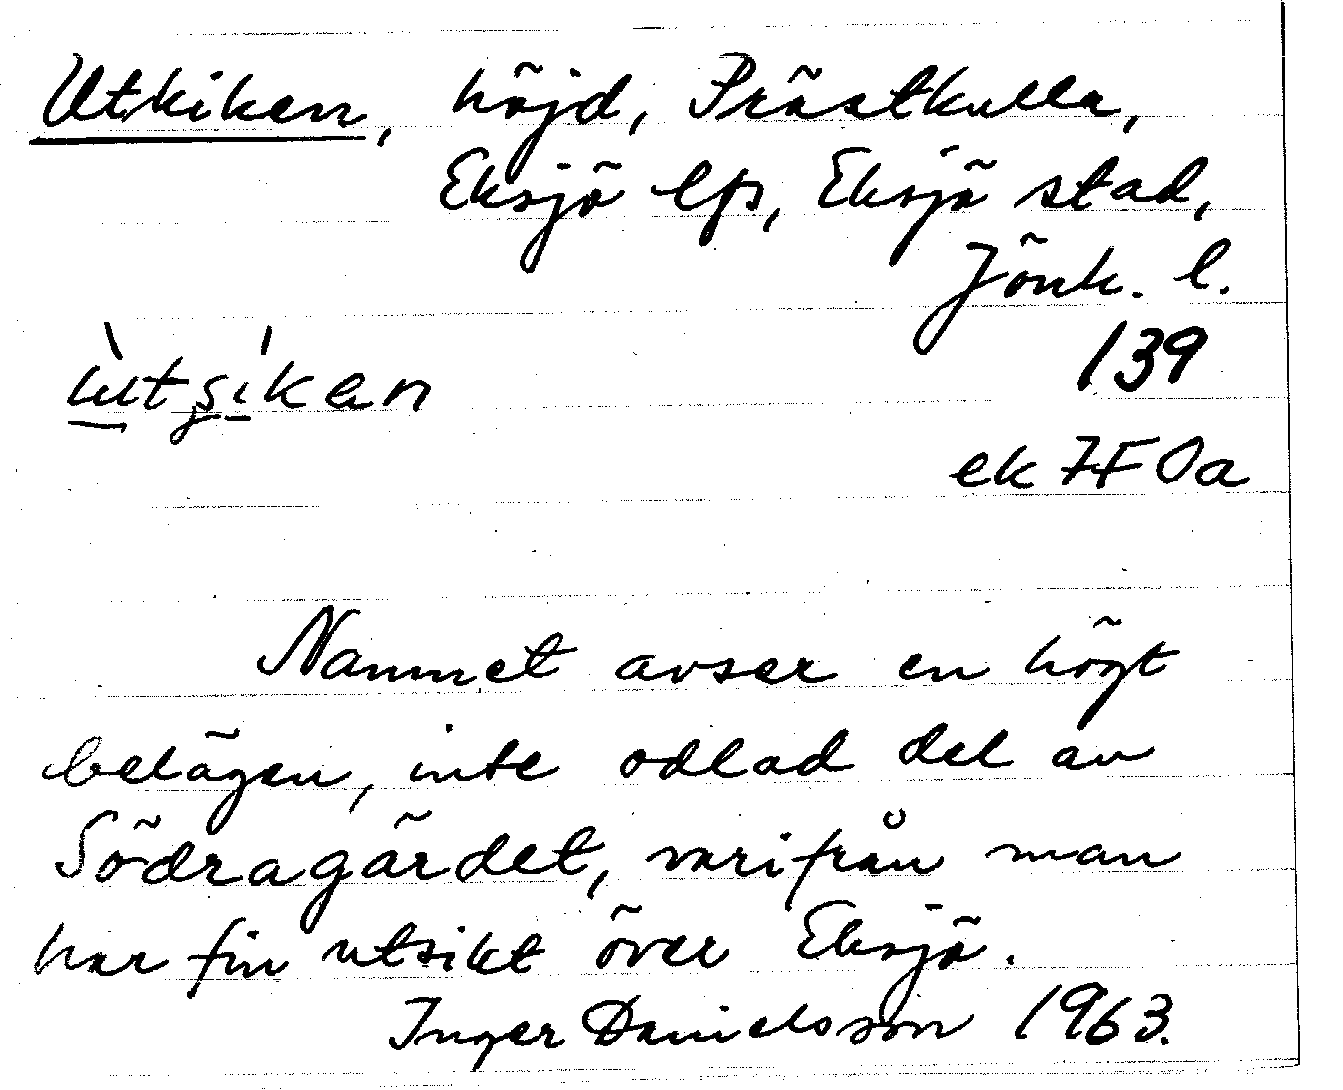 Utkiken, höjd, Prästkulla,
Eksjö lfs, Eksjö stad,
Jönk. l.
139
ek 7F 0a
Namnet avser en högt
belägen, inte odlad del av
Södragärdet, varifrån man
har fin utsikt över Eksjö.
Inger Danielsson 1963.